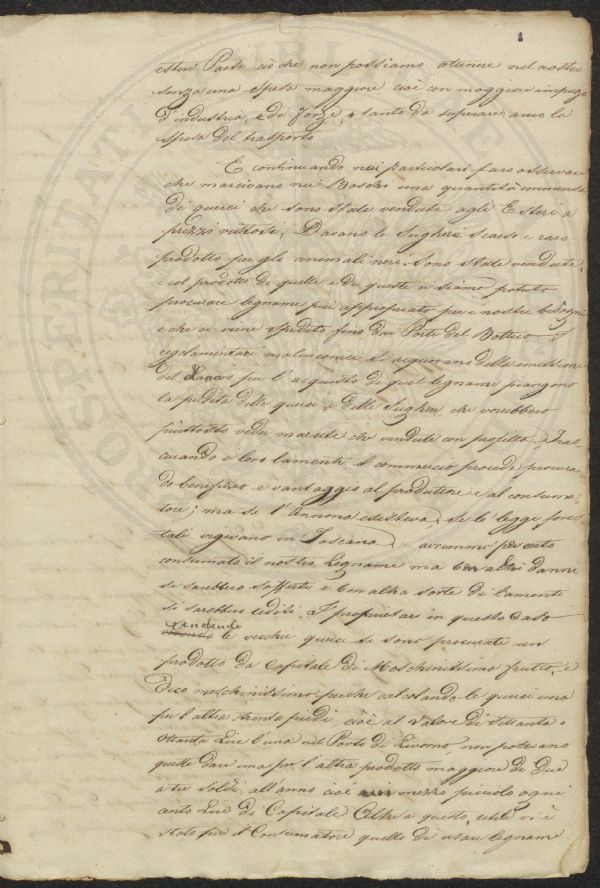 esteri Paesi ciò che non possiamo ottenere nel nostro
senza una spesa maggiore cioè con maggiore impiego
d'industria, e di forze, e tanto da superare anco la
spesa del trasporto
E continuando nei particolari farò osservare
che marcivano nei Boschi una quantità immensa
di querci che sono state vendute agli Esteri a
prezzo vistoso; Davano le Sughere scarso e raro
prodotto per gli animali neri. Sono state vendute,
e col prodotto di quelle e di queste si siamo potuto
procurare legname più appropriato per i nostri bisogni
e che ci viene spedito fino dai Porti del Baltico. I
regolamentari malinconici si acquorano delle emissione
del per l'acquisto di quel legname piangono
la perdita delle querci e delle Sughere che vorrebbero
piuttosto veder marcite che vendute con profitto. Tras-
curando i loro lamenti il commercio procede procuran-
do benefizio e vantaggio al produttore e al consuma-
tore; ma se l'Annona esisteva, se le legge fores-
tali vigevano in Toscana, avremmo per certo
consumato il nostro Legname ma ben altri danni
si sarebbero sofferti e ben altra sorte di lamenti
si sarebbero uditi. I proprietari in questo caso
vendendo
le vecchie querci si sono procurati un
prodotto da Capitale di Meschinissimo frutto, e
dico meschinissimo perchè calcolando le querci una
per l'altra trenta piedi, cioè al valore di settanta o
ottanta Lire l'una nel Porto di Livorno non potevano
queste dare una per l'altra prodotto maggiore di due
a tre soldi all'anno cioè un mezzo piccolo ogni
cento Lire di Capitale. Oltre a questo, utile vi è
stato per il Consumatore quello di usare legname